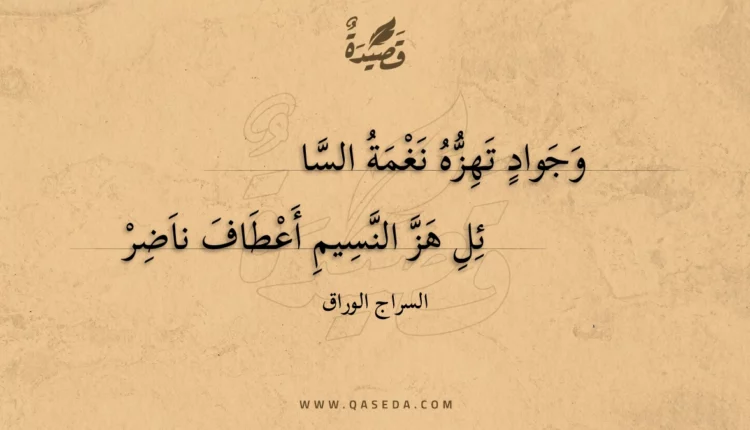 قَصِيْدَةٌ
وَجَوادٍ تَهِزُّهُ نَغْمَةُ السَّا
ئِلِ هَزَّ النَّسِيمِ أَعْطَافَ ناَضِرْ
السراج الوراق
WWW.QASEDA.COM